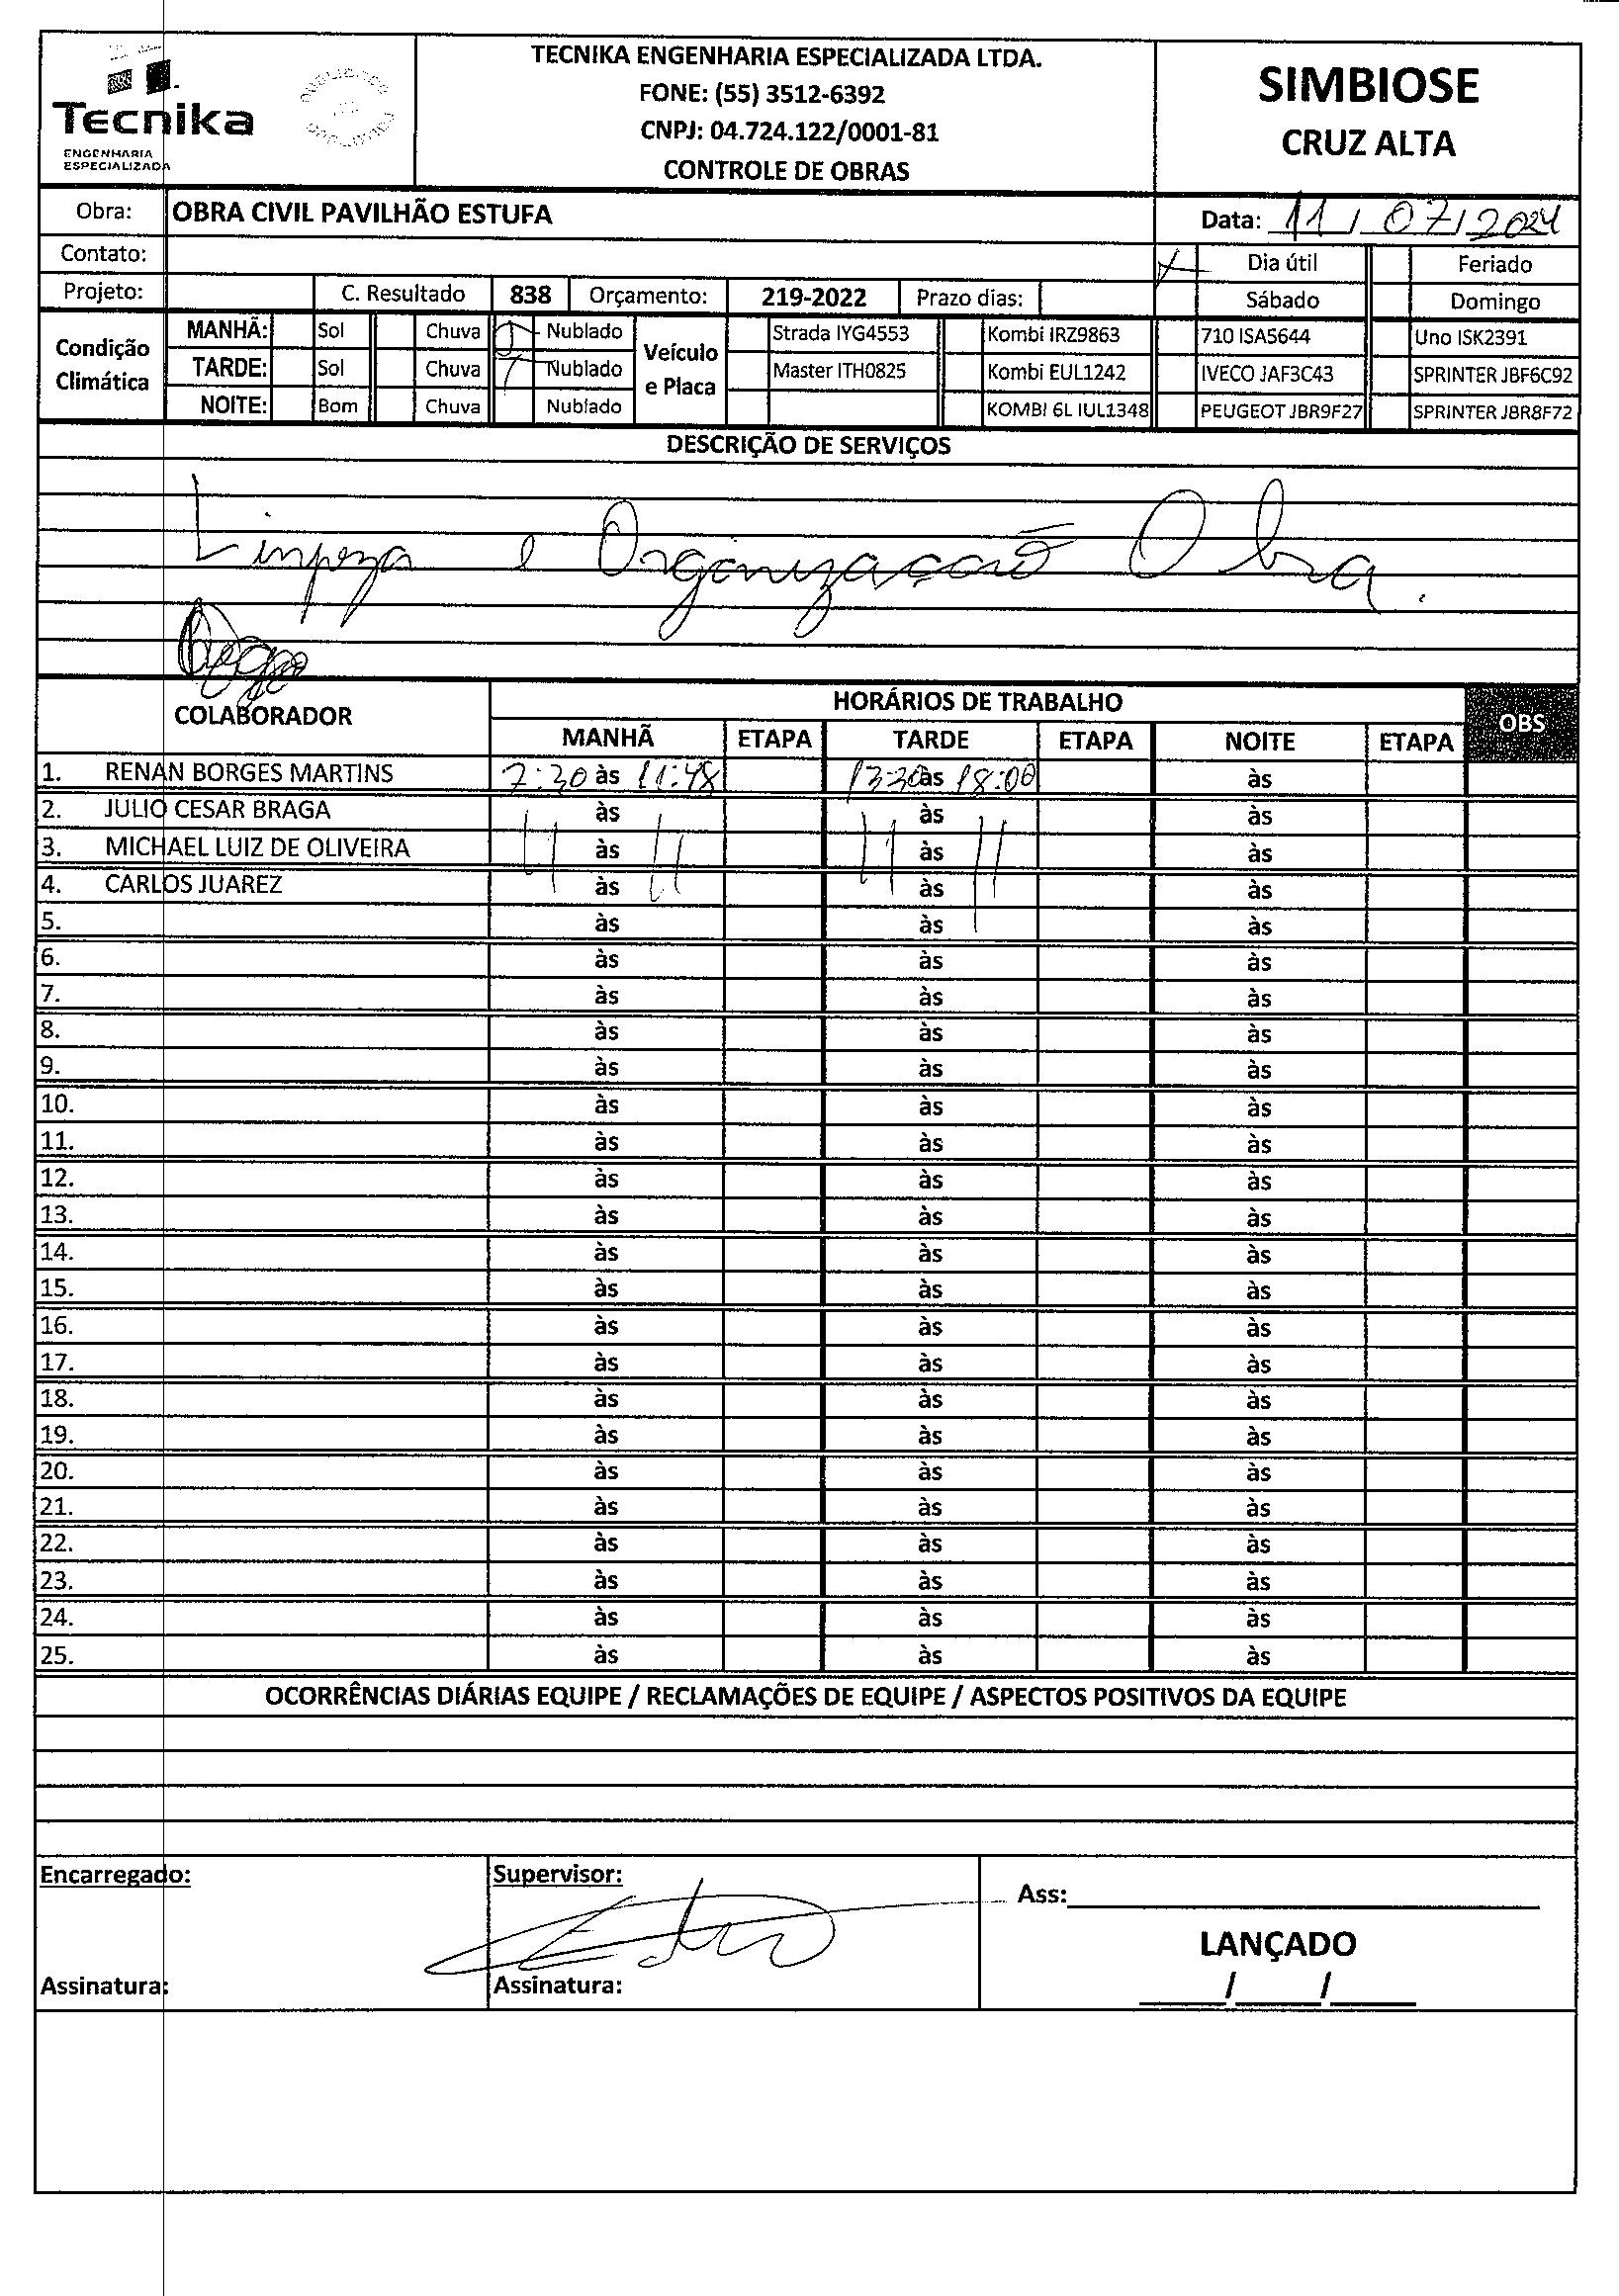 Tecnika
ENGENHARIA
ESPECIALIZADA
TECNIKA ENGENHARIA ESPECIALIZADA LTDA.
FONE: (55) 3512-6392
CNPJ: 04.724.122/0001-81
CONTROLE DE OBRAS
SIMBIOSE
CRUZ ALTA
Obra: OBRA CIVIL PAVILHÃO ESTUFA
Data: 11/07/2024
Contato:
Dia útil Feriado
Projeto: C. Resultado 838 Orçamento: 219-2022 Prazo dias:
Sábado Domingo
Condição Climática
MANHÃ: Sol Chuva Nublado
TARDE: Sol Chuva Nublado
NOITE: Bom Chuva Nublado
Veículo e Placa
Strada IYG4553 Kombi IRZ9863 710 ISA5644 Uno ISK2391
Master ITH0825 Kombi EUL1242 IVECO JAF3C43 SPRINTER JBF6C92
KOMBI 6L IUL1348 PEUGEOT JBR9F27 SPRINTER JBR8F72
DESCRIÇÃO DE SERVIÇOS
Limpeza e Organização Obra.
COLABORADOR
HORÁRIOS DE TRABALHO
OBS
MANHÃ ETAPA TARDE ETAPA NOITE ETAPA
1. RENAN BORGES MARTINS 7:30 às 11:48 13:30 às 18:00 às
2. JULIO CESAR BRAGA às às às
3. MICHAEL LUIZ DE OLIVEIRA às às às
4. CARLOS JUAREZ às às às
5. às às às
6. às às às
7. às às às
8. às às às
9. às às às
10. às às às
11. às às às
12. às às às
13. às às às
14. às às às
15. às às às
16. às às às
17. às às às
18. às às às
19. às às às
20. às às às
21. às às às
22. às às às
23. às às às
24. às às às
25. às às às
OCORRÊNCIAS DIÁRIAS EQUIPE / RECLAMAÇÕES DE EQUIPE / ASPECTOS POSITIVOS DA EQUIPE
Encarregado: Supervisor:
Ass:
LANÇADO
Assinatura: Assinatura:
___/___/___